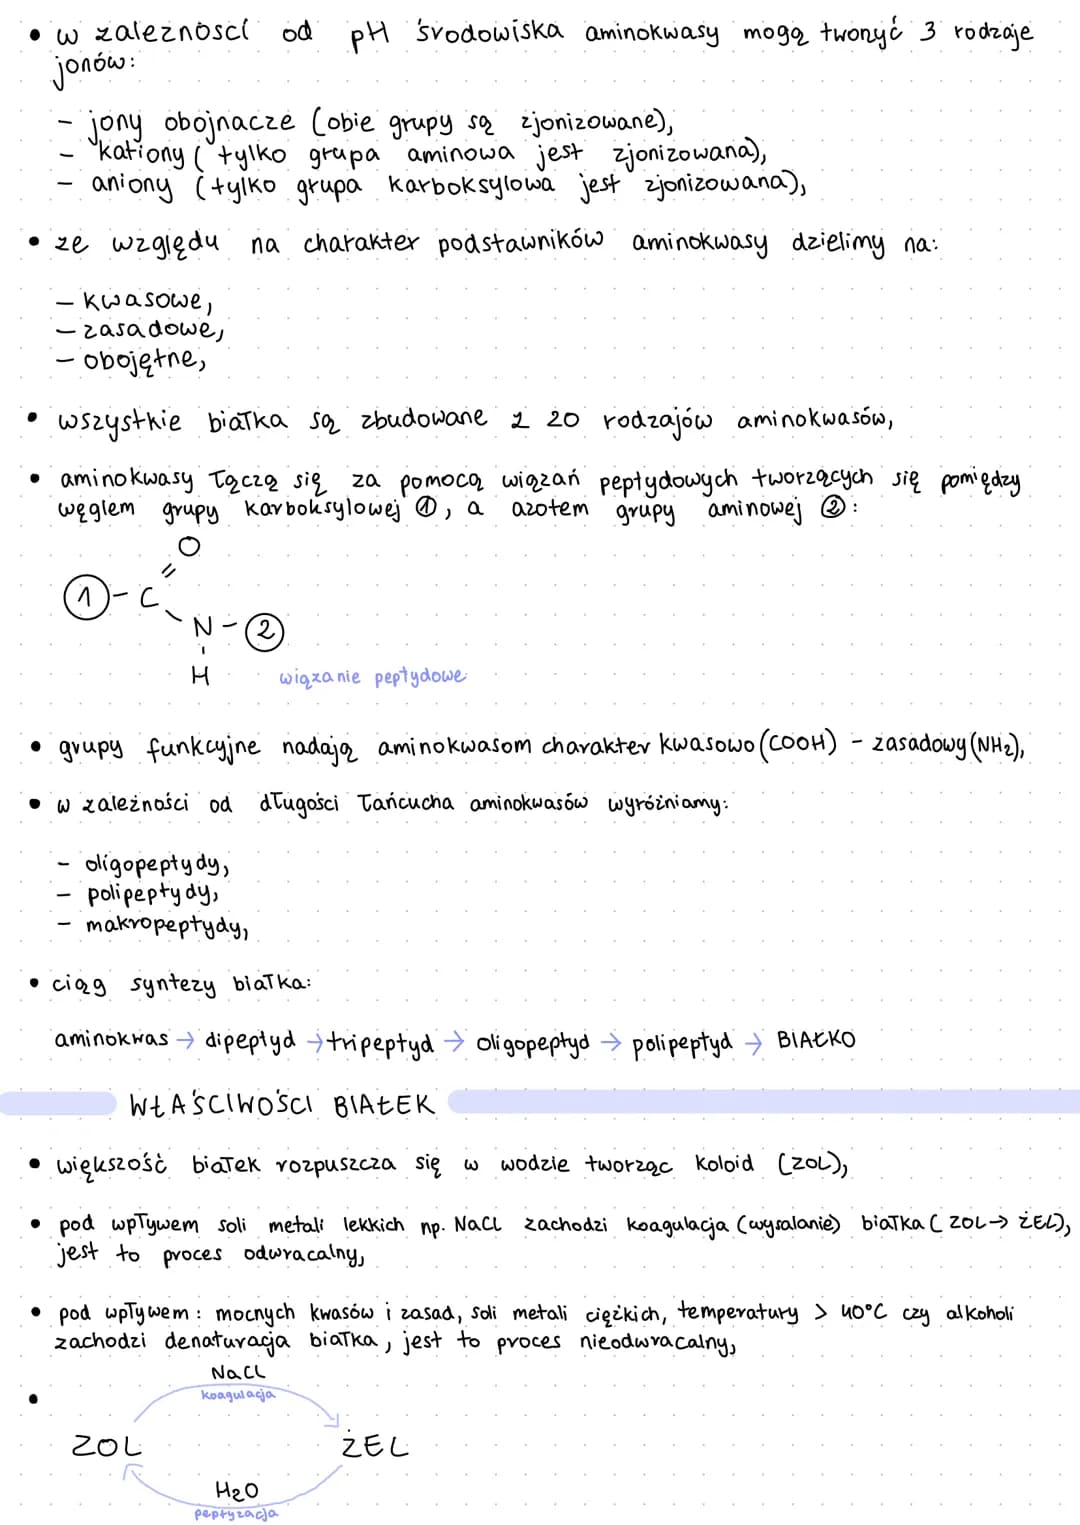 • w zależności od pH środowiska aminokwasy mogą tworzyć 3 rodzaje
jonów:
- jony obojnacze (obie grupy są zjonizowane),
- kationy (tylko grupa aminowa jest zjonizowana),
- aniony (tylko grupa karboksylowa jest zjonizowana),
• ze względu na charakter podstawników aminokwasy dzielimy na:
- kwasowe,
- zasadowe,
- obojętne,
• wszystkie białka są zbudowane z 20 rodzajów aminokwasów,
• aminokwasy łączą się za pomocą wiązań peptydowych tworzących się pomiędzy
węglem grupy karboksylowej ①, a azotem grupy aminowej ②:
O
①-C
N-②
H
wiązanie peptydowe
• grupy funkcyjne nadają aminokwasom charakter kwasowo (COOH) - zasadowy (NH2),
• w zależności od długości łańcucha aminokwasów wyróżniamy:
- oligopeptydy,
- polipeptydy,
- makropeptydy,
• ciąg syntezy białka:
aminokwas → dipeptyd → tripeptyd → oligopeptyd → polipeptyd → BIAŁKO
WŁAŚCIWOŚCI BIAŁEK
• większość białek rozpuszcza się w wodzie tworząc koloid (ZOL),
• pod wpływem soli metali lekkich np. NaCl zachodzi koagulacja (wysalanie) białka (ZOL → ŻEL),
jest to proces odwracalny,
• pod wpływem: mocnych kwasów i zasad, soli metali ciężkich, temperatury > 40°C czy alkoholi
zachodzi denaturacja białka, jest to proces nieodwracalny,
NaCl
• koagulacja
ZOL ŻEL
H2O
peptyzacja